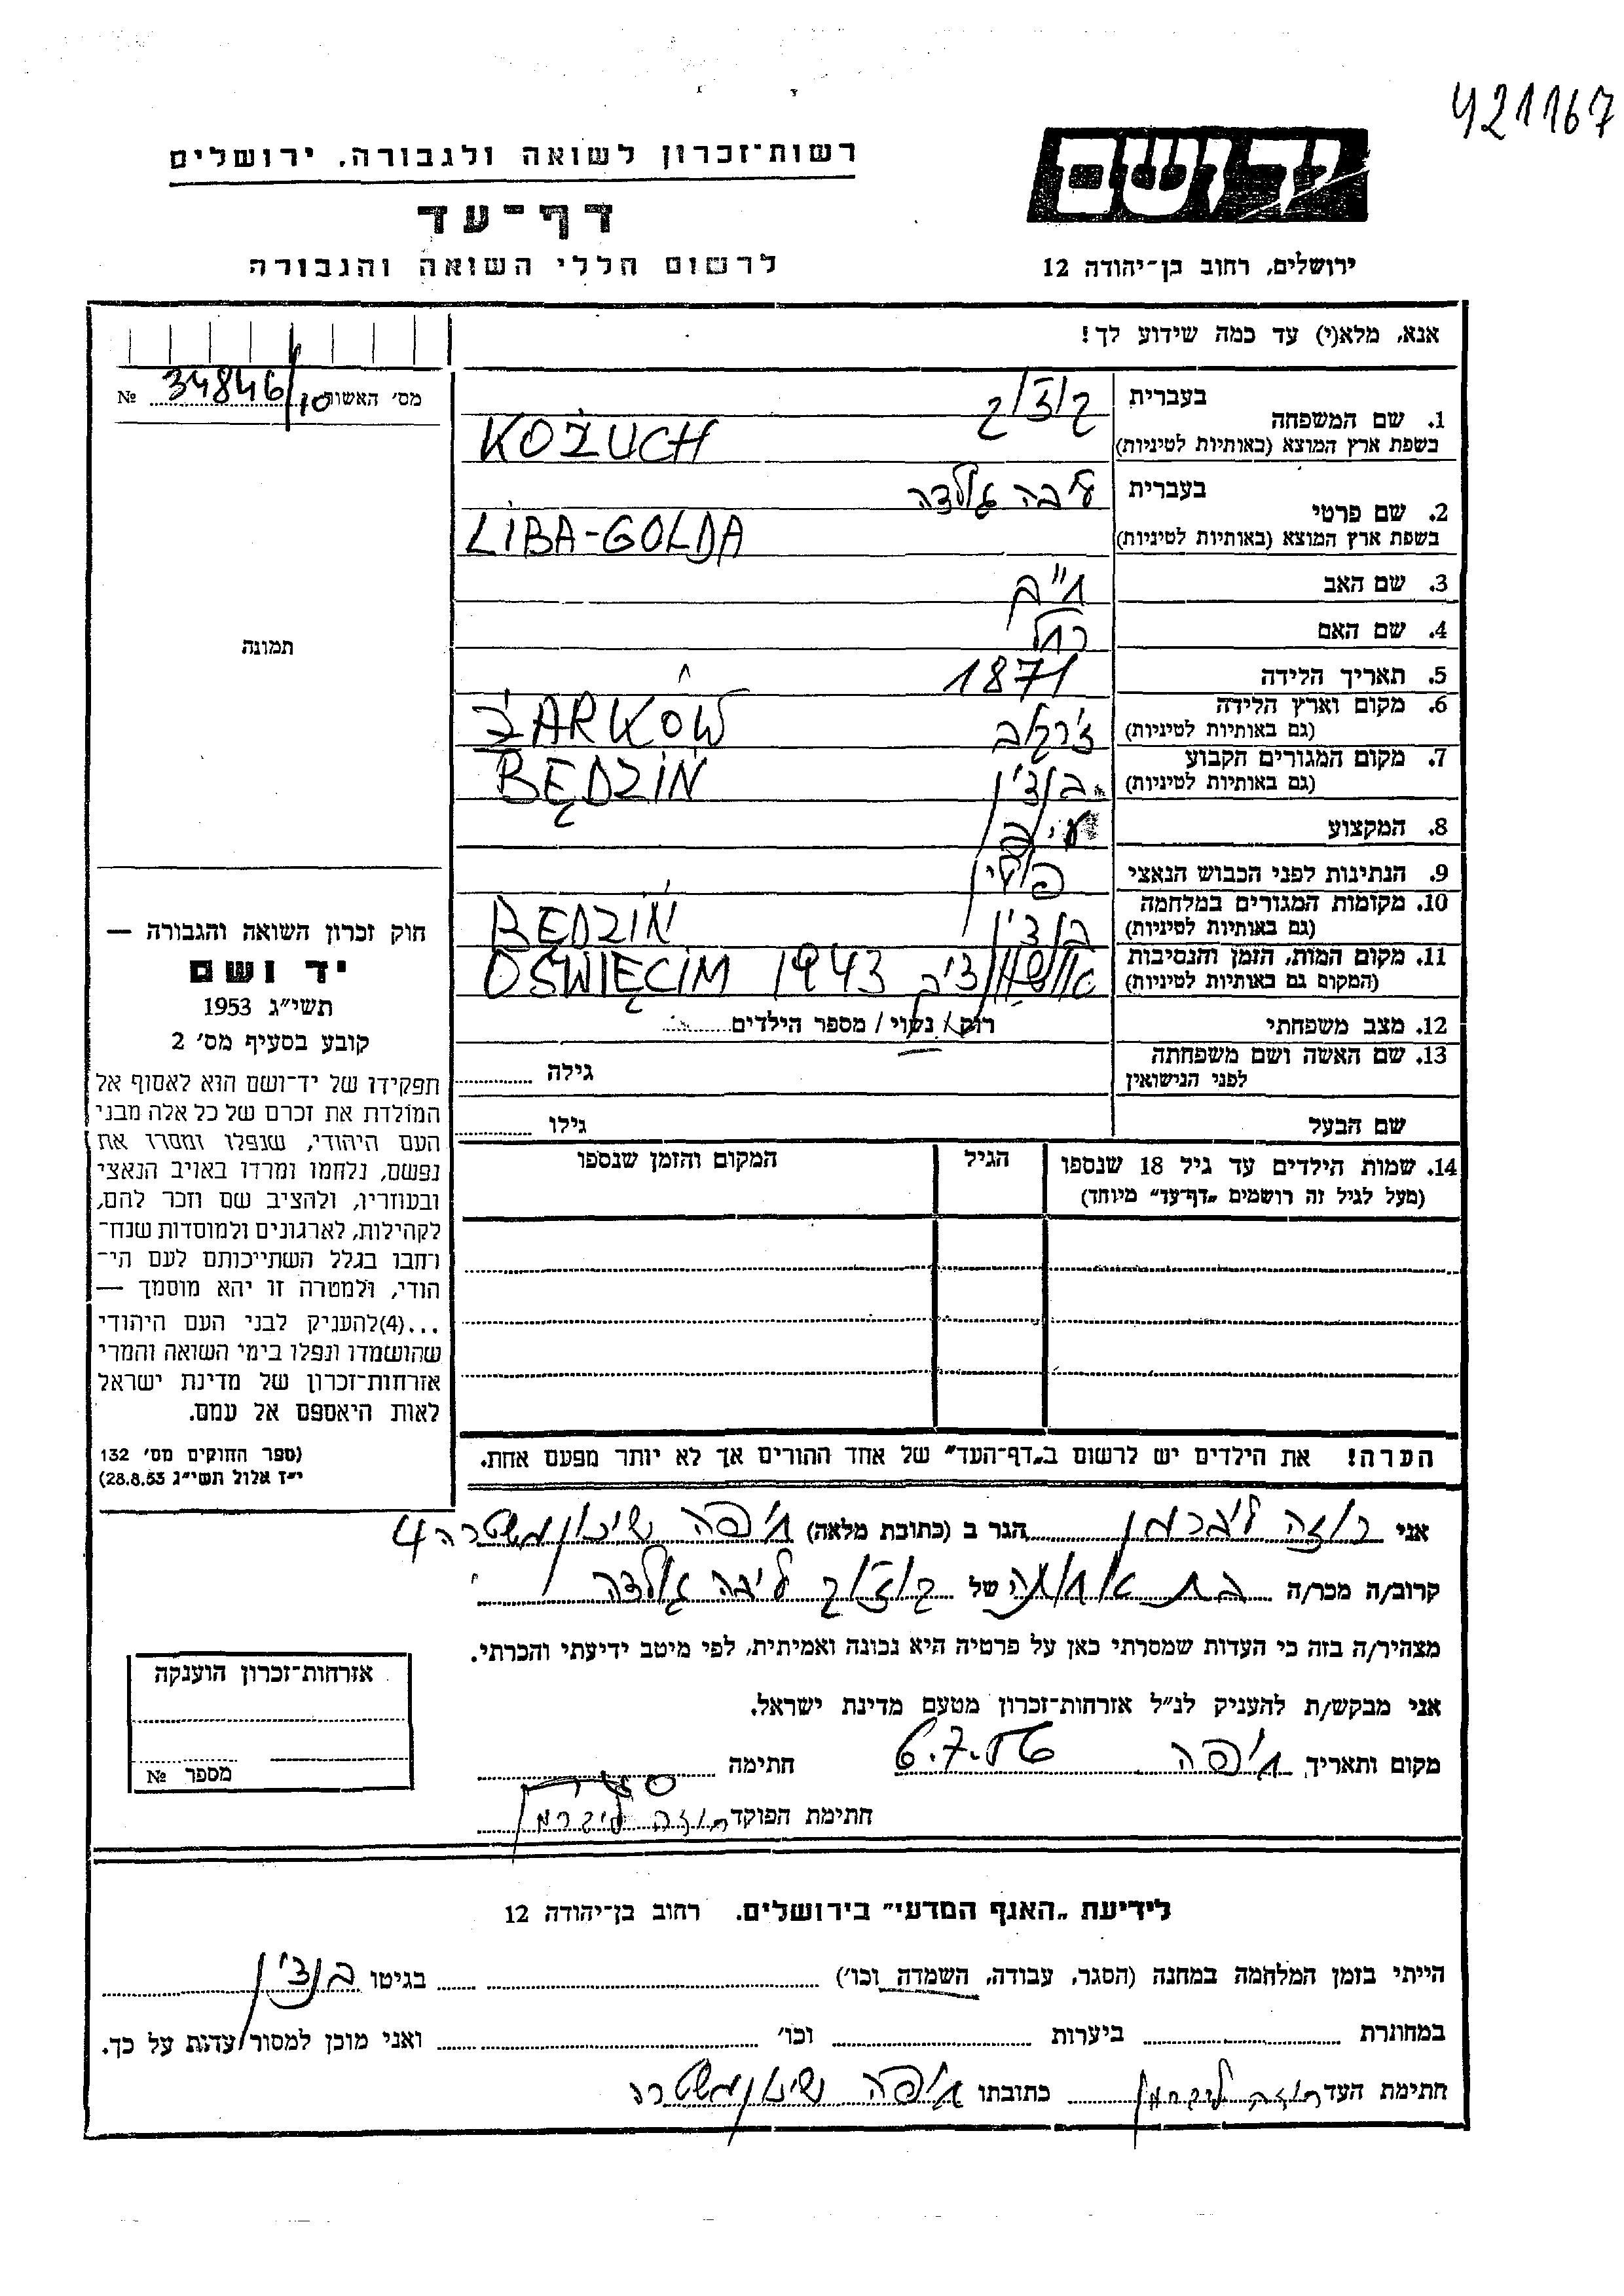 421167
רשות־זכרון לשואה ולגבורה. ירושלים
דף־עד
לרשום חללי השואה והגבורה
יד ושם
ירושלים, רחוב בן־יהודה 12
אנא, מלא(י) עד כמה שידוע לך!
מס׳ האשור 34846/10 №
תמונה
בעברית
1. שם המשפחה
בשפת ארץ המוצא (באותיות לטיניות)
KOŻUCH
בעברית ליבה גולדה
2. שם פרטי
בשפת ארץ המוצא (באותיות לטיניות)
LIBA-GOLDA
3. שם האב
4. שם האם רחל
5. תאריך הלידה 1871
6. מקום וארץ הלידה
(גם באותיות לטיניות)
ŻARKOW
7. מקום המגורים הקבוע
(גם באותיות לטיניות)
בנצין BĘDZIN
8. המקצוע
9. הנתינות לפני הכבוש הנאצי
10. מקומות המגורים במלחמה
(גם באותיות לטיניות)
בנצין BEDZIN
11. מקום המות, הזמן והנסיבות
(המקום גם באותיות לטיניות)
OŚWIĘCIM 1943
12. מצב משפחתי רוק / נשוי / מספר הילדים
13. שם האשה ושם משפחתה
לפני הנישואין
גילה
שם הבעל גילו
14. שמות הילדים עד גיל 18 שנספו
(מעל לגיל זה רושמים „דף־עד״ מיוחד)
הגיל
המקום והזמן שנספו
הערה! את הילדים יש לרשום ב„דף־העד״ של אחד ההורים אך לא יותר מפעם אחת.
חוק זכרון השואה והגבורה —
יד ושם
תשי״ג 1953
קובע בסעיף מס׳ 2
תפקידו של יד־ושם הוא לאסוף אל
המולדת את זכרם של כל אלה מבני
העם היהודי, שנפלו ומסרו את
נפשם, נלחמו ומרדו באויב הנאצי
ובעוזריו, ולהציב שם וזכר להם,
לקהילות, לארגונים ולמוסדות שנח־
רחבו בגלל השתייכותם לעם הי־
הודי, ולמטרה זו יהא מוסמך —
...(4)להעניק לבני העם היהודי
שהושמדו ונפלו בימי השואה והמרי
אזרחות־זכרון של מדינת ישראל
לאות היאספם אל עמם.
(ספר החוקים מס׳ 132
י״ז אלול תשי״ג 28.8.53)
אני רוזה ליברמן הגר ב (כתובת מלאה) חיפה שיכון משטרה 4
קרוב/ה מכר/ה בת אחותה של ליבה גולדה
מצהיר/ה בזה כי העדות שמסרתי כאן על פרטיה היא נכונה ואמיתית, לפי מיטב ידיעתי והכרתי.
אני מבקש/ת להעניק לנ״ל אזרחות־זכרון מטעם מדינת ישראל.
מקום ותאריך חיפה 6.7.56 חתימה
חתימת הפוקד רוזה ליברמן
אזרחות־זכרון הוענקה
מספר №
לידיעת „האגף המדעי״ בירושלים. רחוב בן־יהודה 12
הייתי בזמן המלחמה במחנה (הסגר, עבודה, השמדה וכו׳) בגיטו בנצין
במחתרת ביערות וכו׳ ואני מוכן למסור עדות על כך.
חתימת העד רוזה ליברמן כתובתו חיפה שיכון משטרה